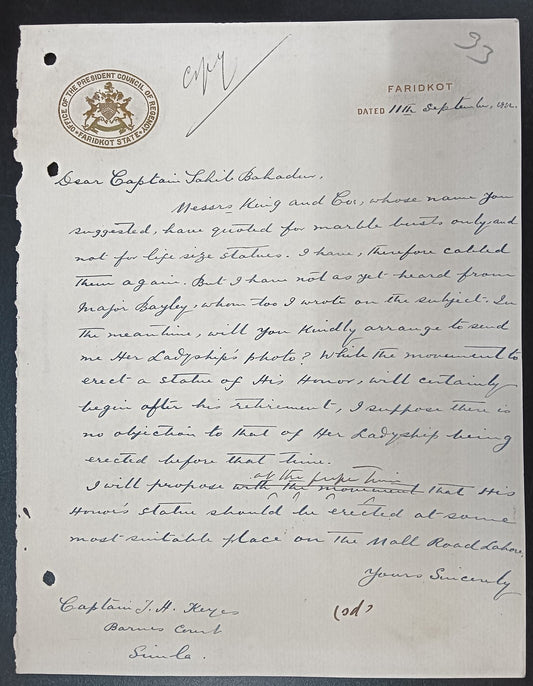 33
copy
OFFICE OF THE PRESIDENT COUNCIL OF REGENCY
FARIDKOT STATE
FARIDKOT
DATED 11th September, 191
Dear Captain Sahib Bahadur,
Messrs King and Co., whose name you
suggested, have quoted for marble busts only and
not for life size statues. I have, therefore cabled
them again. But I have not as yet heard from
Major Bayley, whom too I wrote on the subject. In
the meantime, will you kindly arrange to send
me Her Ladyship's photo? While the movement to
erect a statue of His Honor, will certainly
begin after his retirement, I suppose there is
no objection to that of Her Ladyship being
erected before that time.
at the proper time
I will propose with the movement that His
Honor's statue should be erected at some
most suitable place on the Mall Road Lahore.
Yours Sincerely
Captain T. H. Keyes
(Sd)
Barnes Court
Simla.